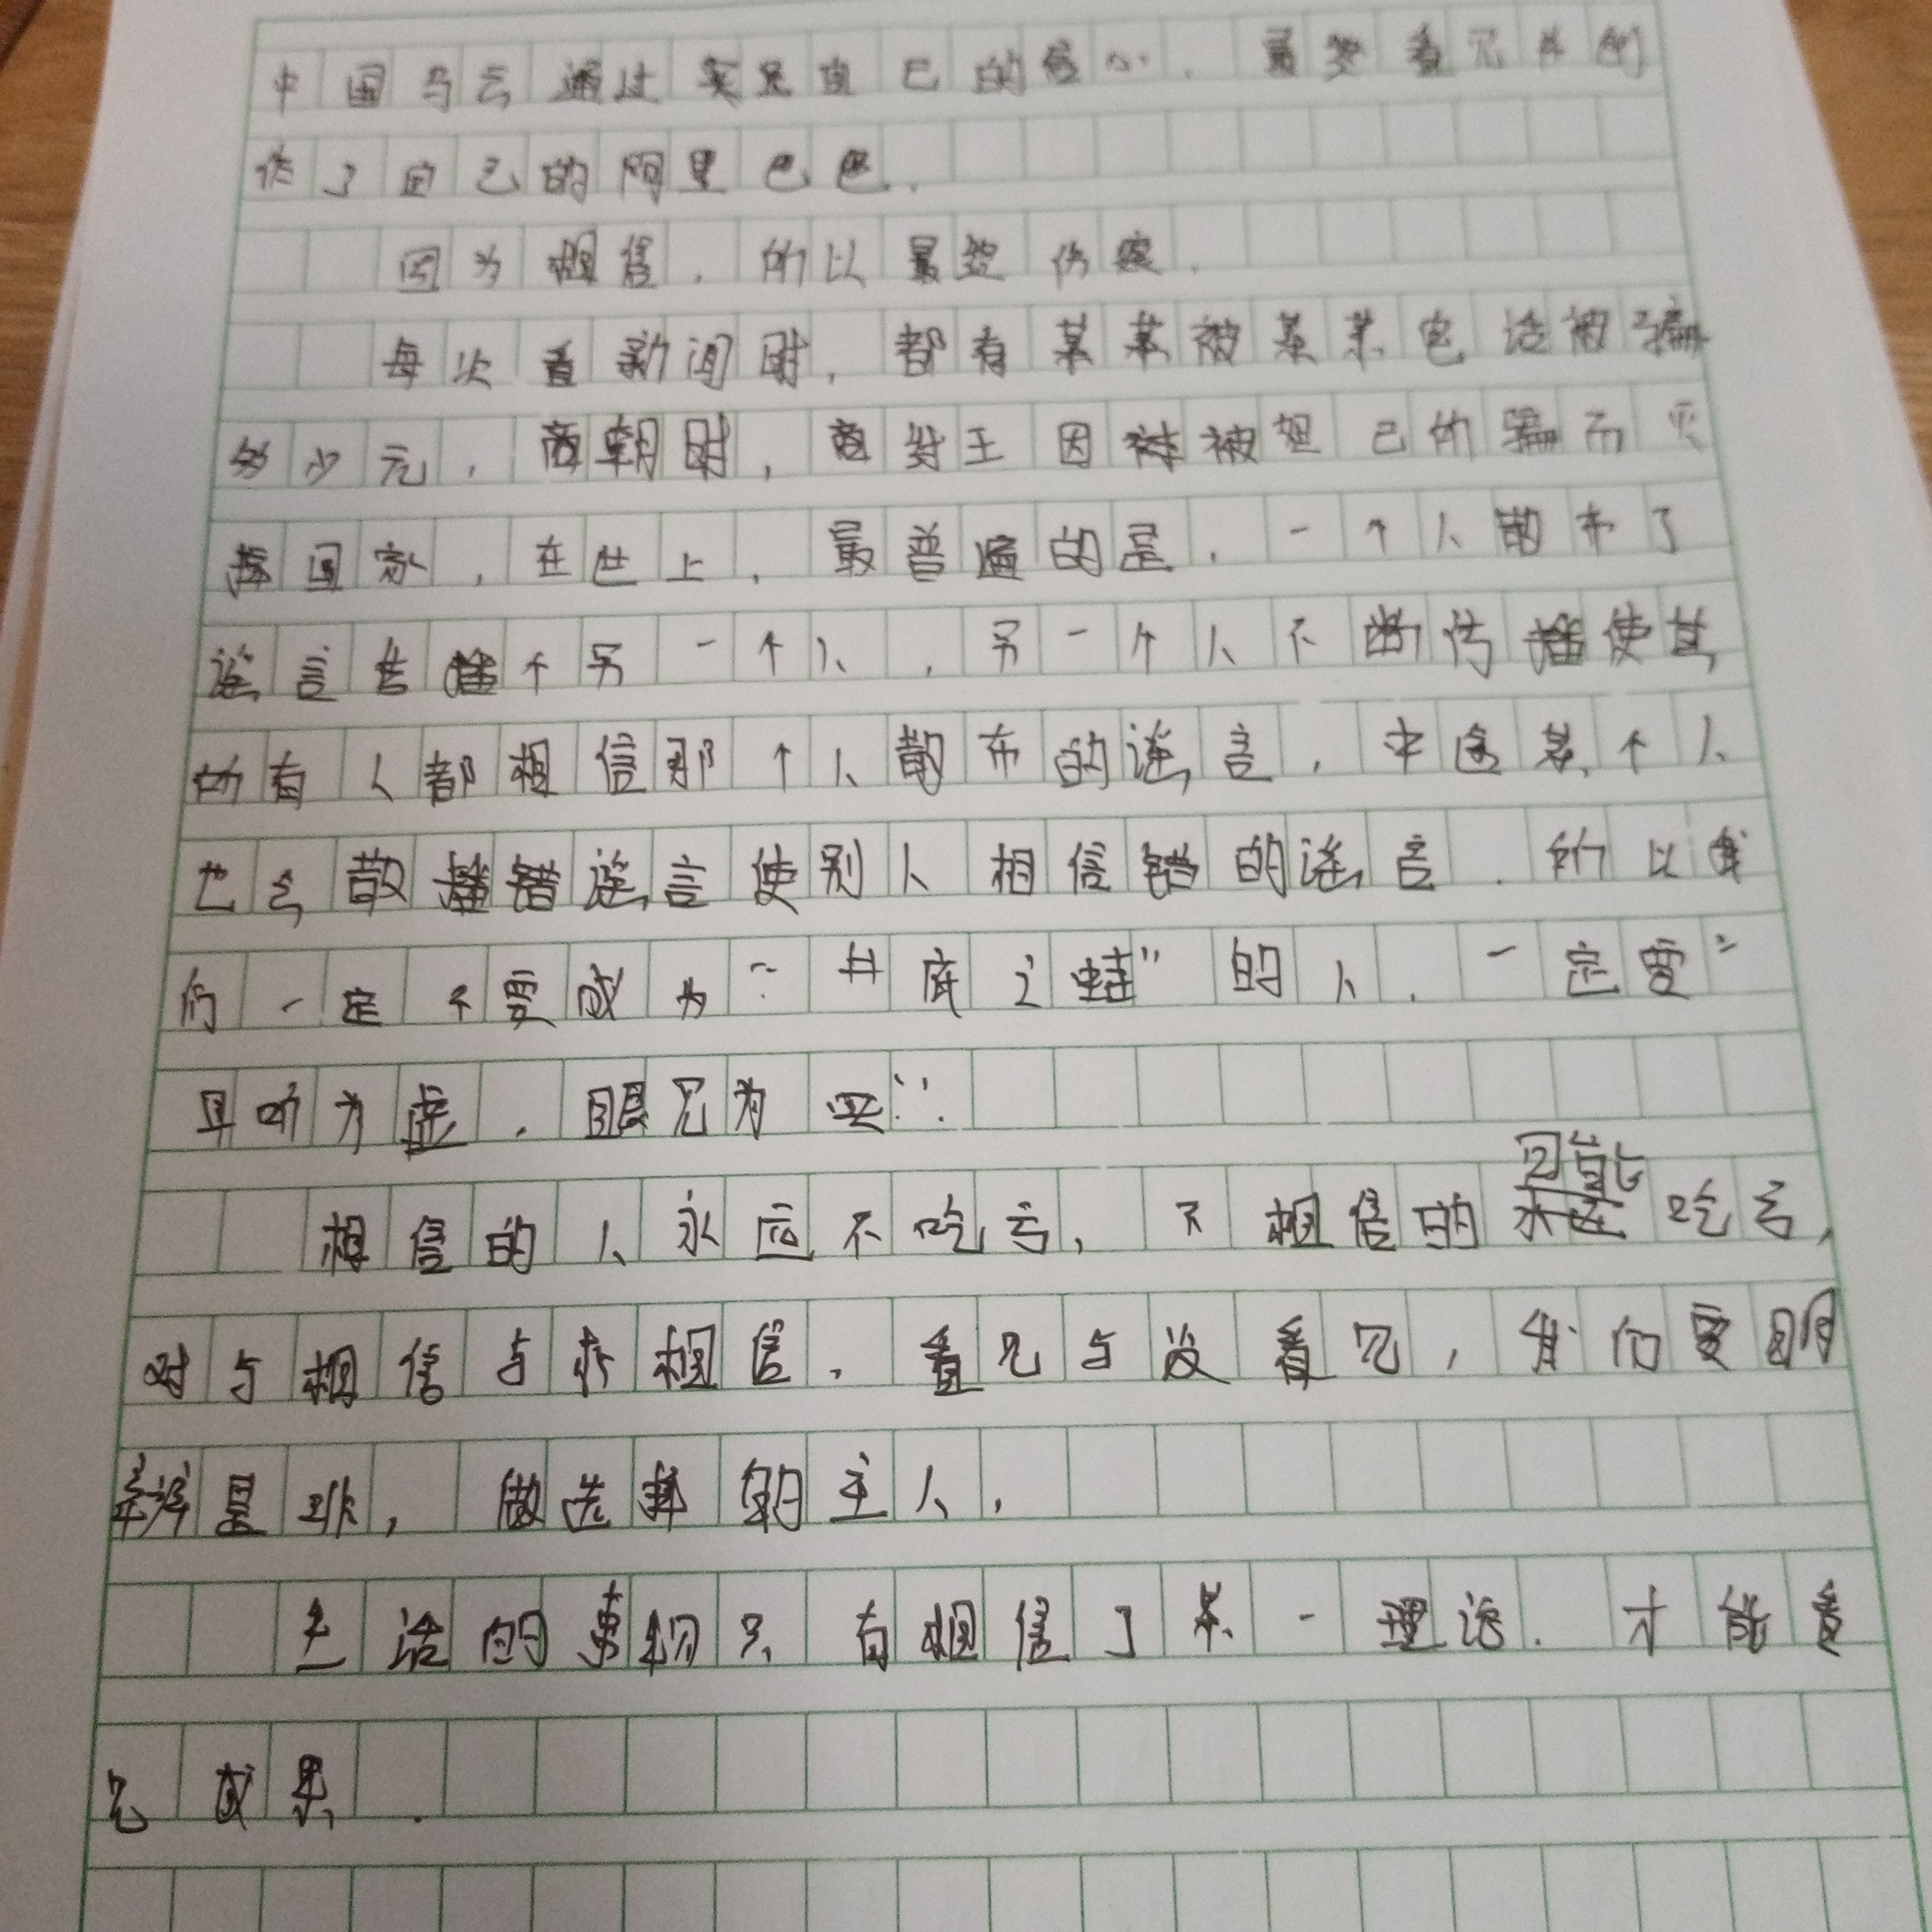 中国马云通过实足自己的信心,最终看见并创
作了自己的阿里巴巴.
因为相信,所以最受伤害.
每次看新闻时,都有某某被某某电话被骗
多少元,商朝时,商纣王因被妲己的骗而灭
国家,在世上,最普遍的是,一个人散布了
谣言传播个另一个人,另一个人不断传播使其
所有人都相信那个人散布的谣言,中途某个人
也会散播错谣言使别人相信错的谣言.所以我
们一定不要成为“井底之蛙”的人.一定要“
耳听为虚,眼见为实”.
相信的人永远不吃亏,不相信的可能吃亏,
对与相信与不相信,看见与没看见,我们要明
辨是非,做选择的主人.
生活的事物只有相信了某一理论.才能看
见成果.